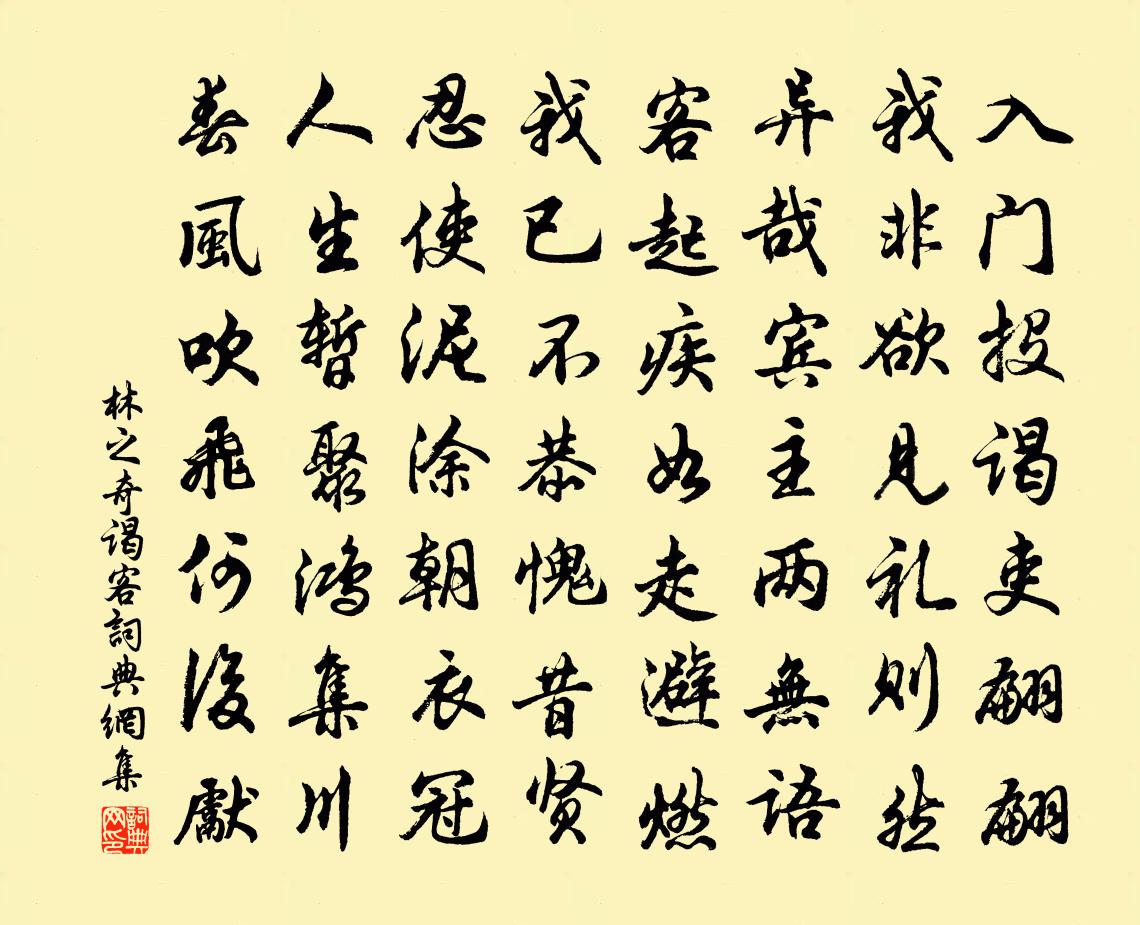 入门投谒吏翩翩
我非欲见礼则然
异哉宾主两無语
客起疾如走避燃
我已不恭愧昔贤
忍使泥涂朝衣冠
人生暫聚鸿集川
春風吹飛何後獻
林之奇谒客詞典網集
詞典网印